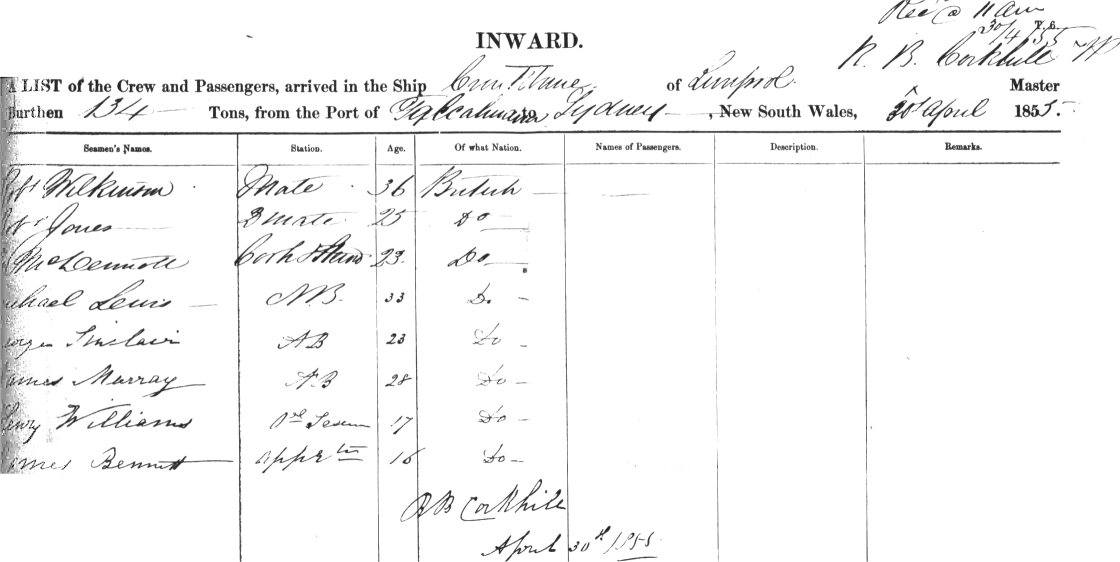 Rec'd 11 am
30/4/55 T. B.
INWARD.
R. B. Corkhill
A LIST of the Crew and Passengers, arrived in the Ship of Liverpool Master
Burthen 134 Tons, from the Port of to Sydney, New South Wales, 30th April 1855.
Seamen's Names. Station. Age. Of what Nation. Names of Passengers. Description. Remarks.
Wilkinson Mate 36 British
Jones 2 Mate 25 Do
McDermott Cook & 23 Do
chael Lewis AB 33 Do
eorge Sinclair AB 23 Do
ames Murray AB 28 Do
enry Williams 17 Do
ames Bennett 16 Do
R B Corkhill
April 30th 1855